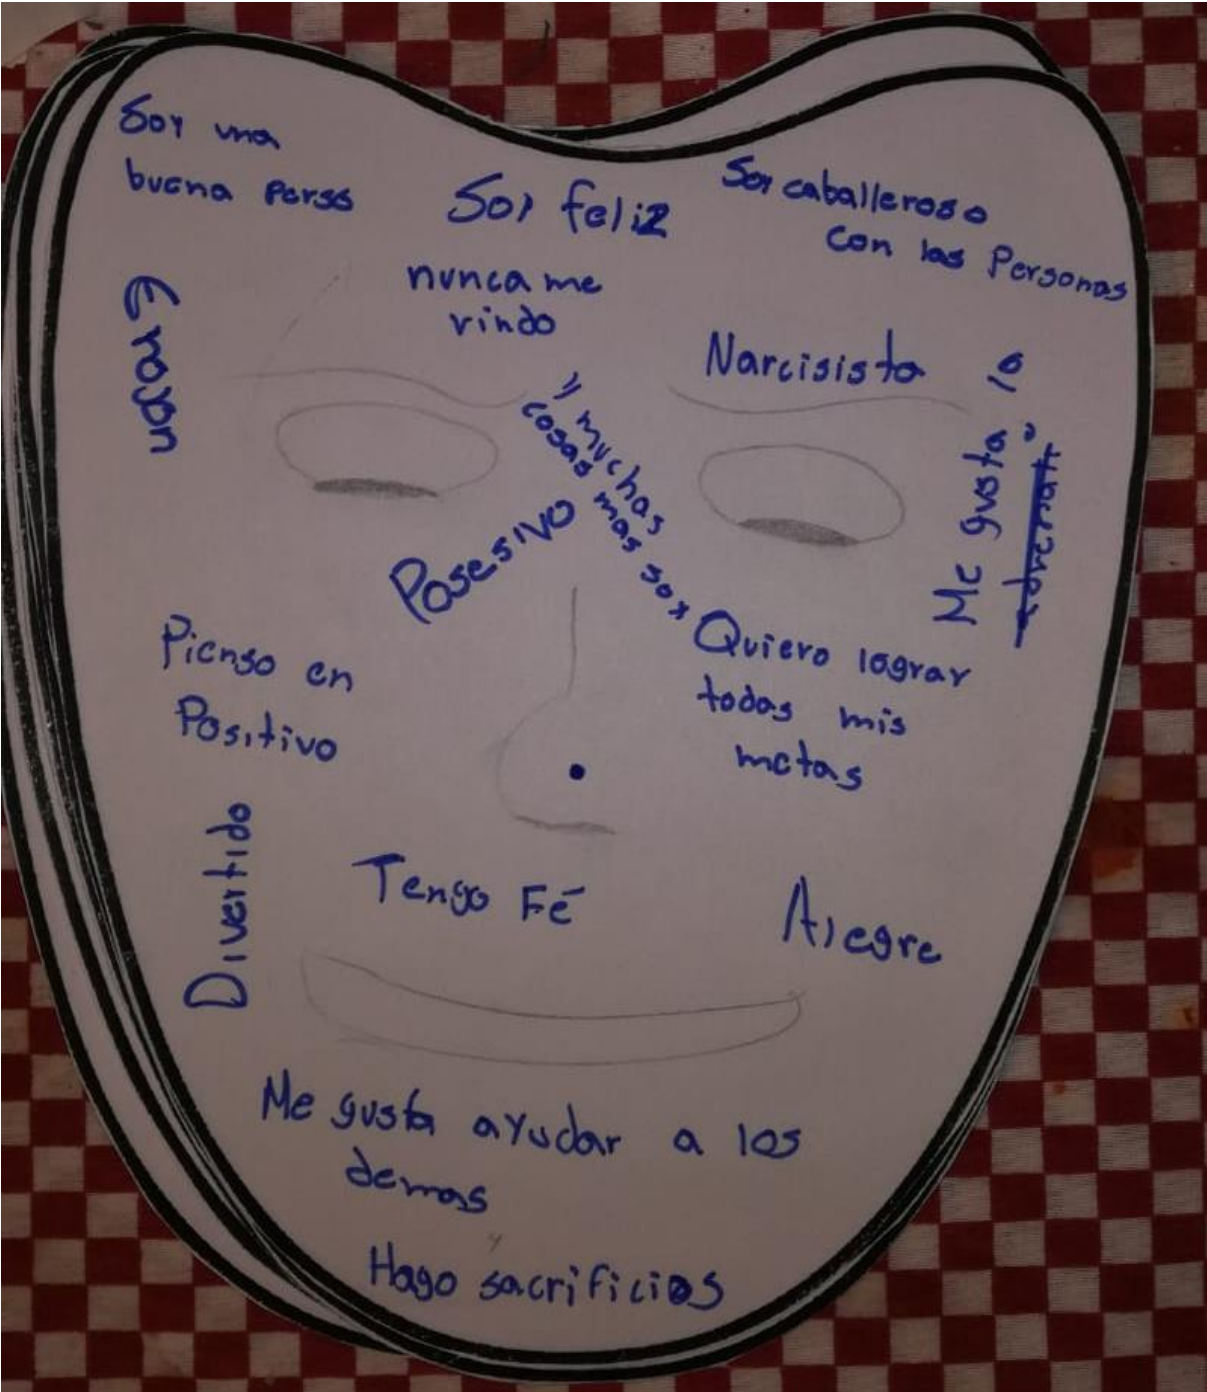 Soy una
buena perso
Soy feliz
Soy caballeroso
con las Personas
nunca me
rindo
Enojon
Narcisista
Me gusta la
y muchas
cosas mas soy
Posesivo
Pienso en
Positivo
Quiero lograr
todas mis
metas
Divertido
Tengo Fé
Alegre
Me gusta ayudar a los
demas
Hago sacrificios